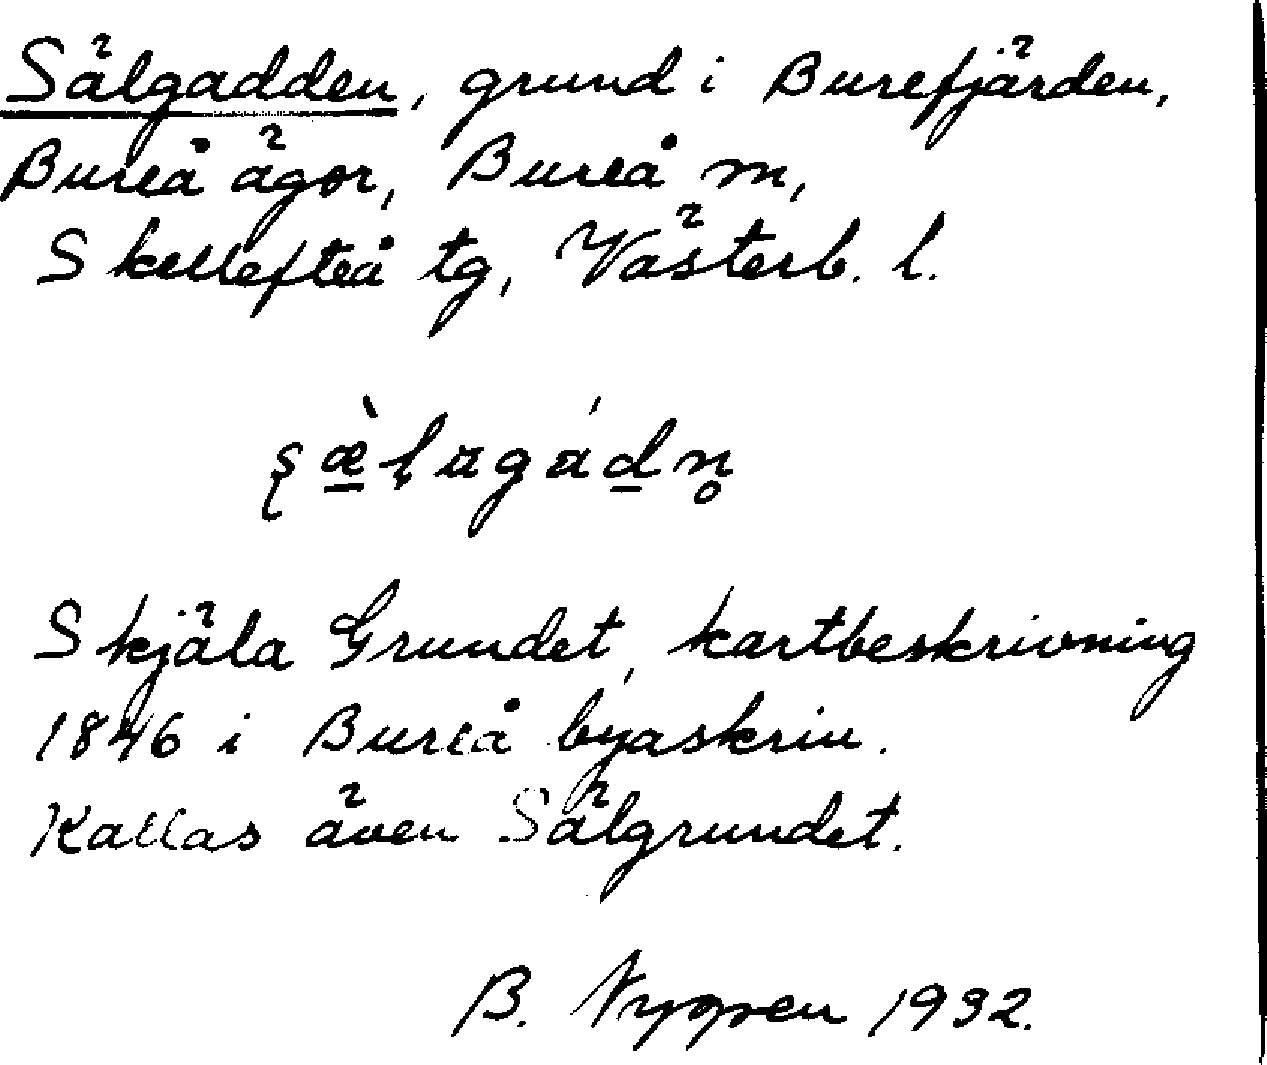 Sälgadden, grund i Burefjärden,
Bureå ägor, Bureå m,
Skellefteå tg, Västerb. l.
Skjäla Grundet, kartbeskrivning
1846 i Bureå byaskrin.
Kallas även Sälgrundet.
B. Nygren 1932.